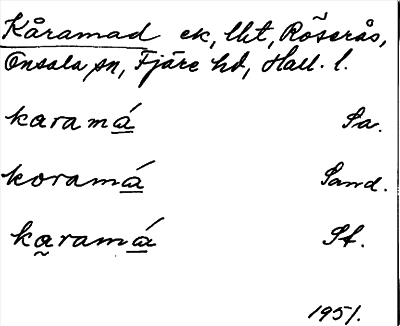 Kåramad ek, lht, Röserås,
Onsala sn, Fjäre hd, Hall. l.
karamá Sa.
koramá Sand.
ka̰ramá St.
1951.